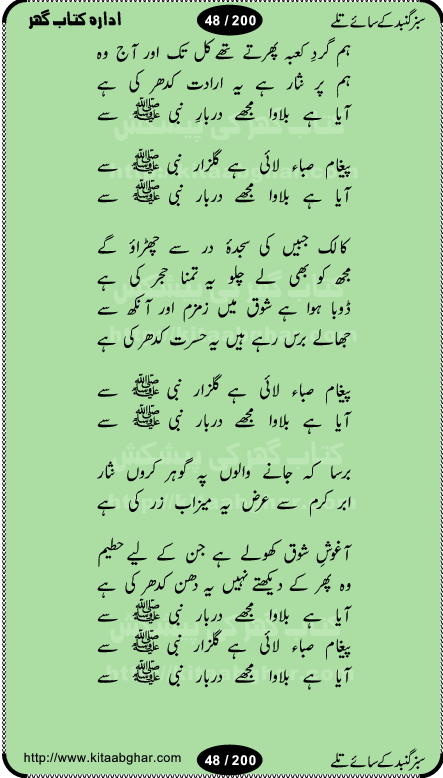 سبز گنبد کے سائے تلے 48 / 200 ادارہ کتاب گھر
ہم گردِ کعبہ پھرتے تھے کل تک اور آج وہ
ہم پر نثار ہے یہ ارادت کدھر کی ہے
آیا ہے بلاوا مجھے دربارِ نبی ﷺ سے
پیغام صباء لائی ہے گلزار نبی ﷺ سے
آیا ہے بلاوا مجھے دربار نبی ﷺ سے
کالک جبیں کی سجدۂ در سے چھڑاؤ گے
مجھ کو بھی لے چلو یہ تمنا حجر کی ہے
ڈوبا ہوا ہے شوق میں زمزم اور آنکھ سے
جھالے برس رہے ہیں یہ حسرت کدھر کی ہے
پیغام صباء لائی ہے گلزار نبی ﷺ سے
آیا ہے بلاوا مجھے دربار نبی ﷺ سے
برسا کہ جانے والوں پہ گوہر کروں نثار
ابر کرم سے عرض یہ میزاب زر کی ہے
آغوشِ شوق کھولے ہے جن کے لیے حطیم
وہ پھر کے دیکھتے نہیں یہ دھن کدھر کی ہے
آیا ہے بلاوا مجھے دربار نبی ﷺ سے
پیغام صباء لائی ہے گلزار نبی ﷺ سے
آیا ہے بلاوا مجھے دربار نبی ﷺ سے
کتاب گھر کی پیشکش
http://kitaabghar.com
کتاب گھر کی پیشکش
http://kitaabghar.com
کتاب گھر کی پیشکش
http://kitaabghar.com
کتاب گھر کی پیشکش
http://kitaabghar.com
سبز گنبد کے سائے تلے 48 / 200 http://www.kitaabghar.com